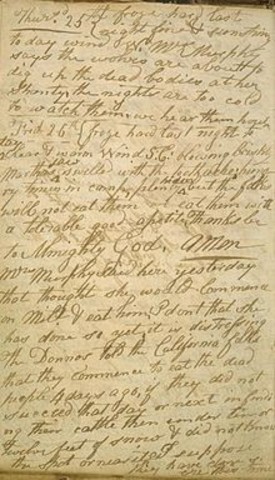 Thurs'd 25th froze hard last
night fine & sunshiny
to day wind W. Mrs Murphy
says the wolves are about to
dig up the dead bodies at her
Shanty, the nights are too cold
to watch them, we hear them howl
Frid 26th froze hard last night to
day clear & warm Wind S.E. blowing briskly
Marthas jaw swelled with the toothache; hungry
times in camp, plenty hides but the folks
will not eat them we eat them with
a tolerable good apetite. Thanks be
to Almighty God. Amen
Mrs Murphy said here yesterday
that thought she would commence
on Milt & eat him. I dont that she
has done so yet, it is distressing
The Donnos told the California folks
that they commence to eat the dead
people 4 days ago, if they did not
succeed that day or next in finding
their cattle then under ten or
twelve feet of snow & did not know
the spot or near it, I suppose
They have done so ere this time